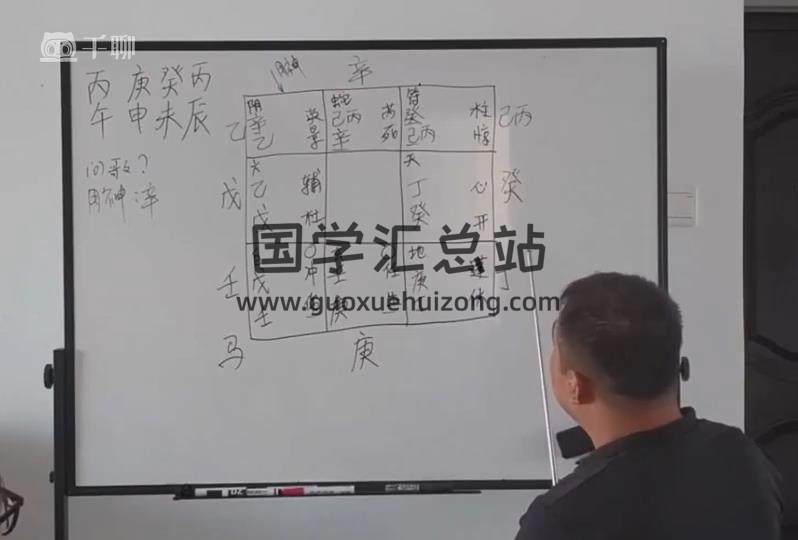 千聊
丙 庚 癸 丙
午 申 未 辰
问
用神 辛
用神
辛
乙
阴 辛 乙
英 景
蛇 己丙 辛
芮 死
符 癸 己丙
柱 惊
己丙
戊
六 乙 戊
辅 杜
天 丁 癸
心 开
癸
国学汇总站
www.guoxuehuizong.com
壬
戊 壬
冲
庚
地 庚
丁
马
庚